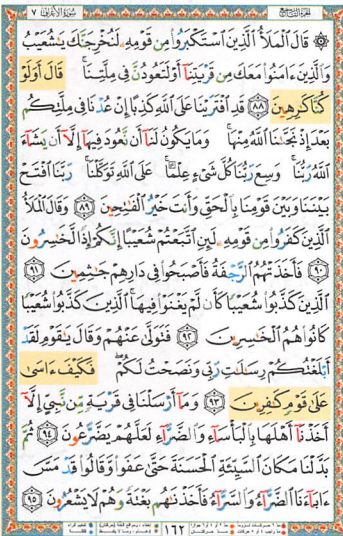 الجزء التاسع سورة الأعراف ٧
۞ قَالَ ٱلْمَلَأُ ٱلَّذِينَ ٱسْتَكْبَرُوا۟ مِن قَوْمِهِۦ لَنُخْرِجَنَّكَ يَٰشُعَيْبُ
وَٱلَّذِينَ ءَامَنُوا۟ مَعَكَ مِن قَرْيَتِنَآ أَوْ لَتَعُودُنَّ فِى مِلَّتِنَا ۚ قَالَ أَوَلَوْ
كُنَّا كَٰرِهِينَ ٨٨ قَدِ ٱفْتَرَيْنَا عَلَى ٱللَّهِ كَذِبًا إِنْ عُدْنَا فِى مِلَّتِكُم
بَعْدَ إِذْ نَجَّىٰنَا ٱللَّهُ مِنْهَا ۚ وَمَا يَكُونُ لَنَآ أَن نَّعُودَ فِيهَآ إِلَّآ أَن يَشَآءَ
ٱللَّهُ رَبُّنَا ۚ وَسِعَ رَبُّنَا كُلَّ شَىْءٍ عِلْمًا ۚ عَلَى ٱللَّهِ تَوَكَّلْنَا ۚ رَبَّنَا ٱفْتَحْ
بَيْنَنَا وَبَيْنَ قَوْمِنَا بِٱلْحَقِّ وَأَنتَ خَيْرُ ٱلْفَٰتِحِينَ ٨٩ وَقَالَ ٱلْمَلَأُ
ٱلَّذِينَ كَفَرُوا۟ مِن قَوْمِهِۦ لَئِنِ ٱتَّبَعْتُمْ شُعَيْبًا إِنَّكُمْ إِذًا لَّخَٰسِرُونَ
٩٠ فَأَخَذَتْهُمُ ٱلرَّجْفَةُ فَأَصْبَحُوا۟ فِى دَارِهِمْ جَٰثِمِينَ ٩١
ٱلَّذِينَ كَذَّبُوا۟ شُعَيْبًا كَأَن لَّمْ يَغْنَوْا۟ فِيهَا ۚ ٱلَّذِينَ كَذَّبُوا۟ شُعَيْبًا
كَانُوا۟ هُمُ ٱلْخَٰسِرِينَ ٩٢ فَتَوَلَّىٰ عَنْهُمْ وَقَالَ يَٰقَوْمِ لَقَدْ
أَبْلَغْتُكُمْ رِسَٰلَٰتِ رَبِّى وَنَصَحْتُ لَكُمْ ۖ فَكَيْفَ ءَاسَىٰ
عَلَىٰ قَوْمٍ كَٰفِرِينَ ٩٣ وَمَآ أَرْسَلْنَا فِى قَرْيَةٍ مِّن نَّبِىٍّ إِلَّآ
أَخَذْنَآ أَهْلَهَا بِٱلْبَأْسَآءِ وَٱلضَّرَّآءِ لَعَلَّهُمْ يَضَّرَّعُونَ ٩٤ ثُمَّ
بَدَّلْنَا مَكَانَ ٱلسَّيِّئَةِ ٱلْحَسَنَةَ حَتَّىٰ عَفَوا۟ وَّقَالُوا۟ قَدْ مَسَّ
ءَابَآءَنَا ٱلضَّرَّآءُ وَٱلسَّرَّآءُ فَأَخَذْنَٰهُم بَغْتَةً وَهُمْ لَا يَشْعُرُونَ ٩٥
١٦٢